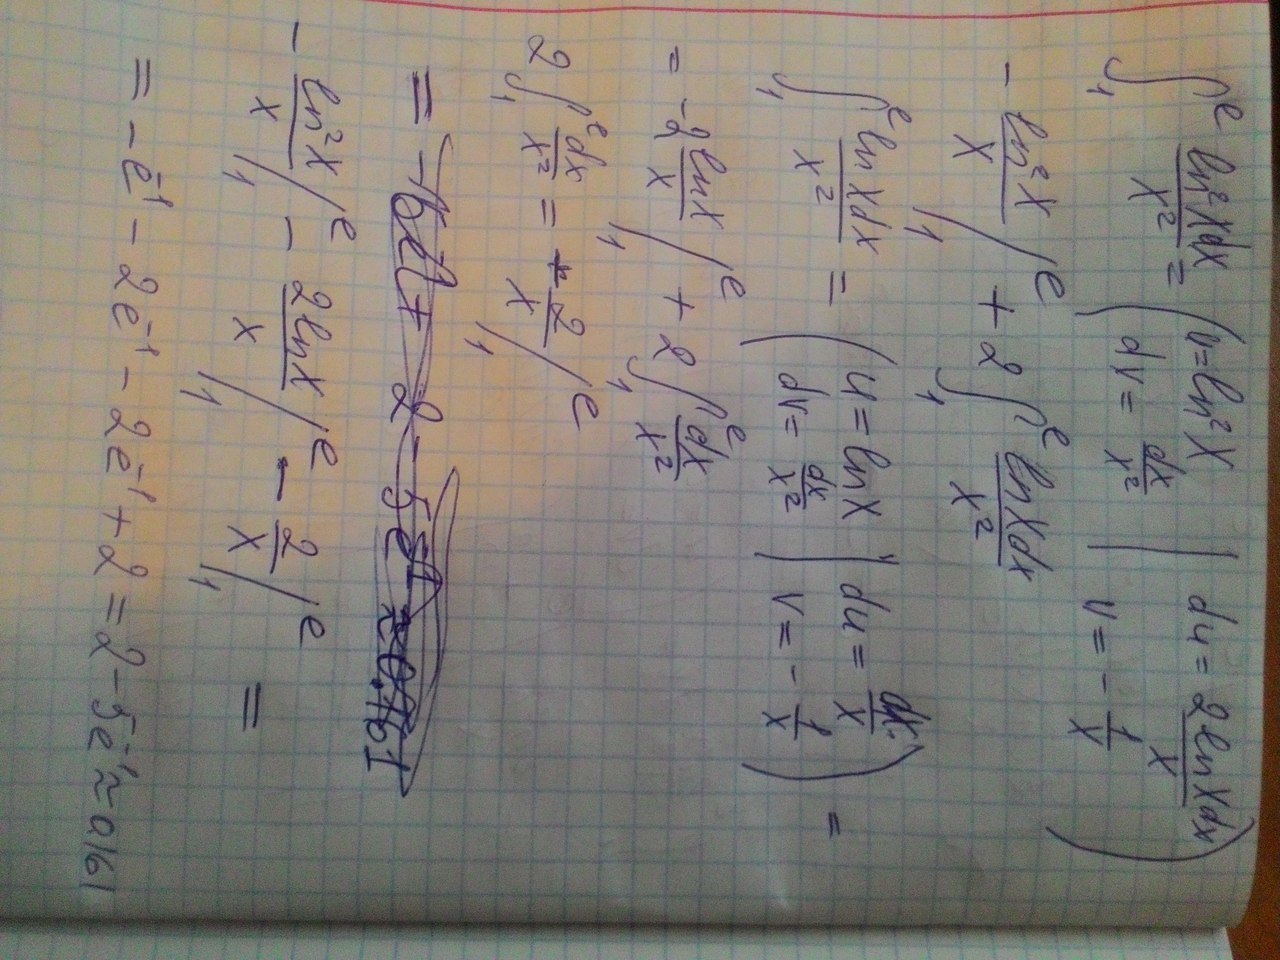 ∫₁ᵉ ln²x dx / x² = ( u = ln²x | du = 2lnx dx / x ; dv = dx / x² | v = - 1/x )
- ln²x / x |₁ᵉ + 2 ∫₁ᵉ lnx dx / x²
∫₁ᵉ lnx dx / x² = ( u = lnx | du = dx / x ; dv = dx / x² | v = - 1/x ) =
= -2 lnx / x |₁ᵉ + 2 ∫₁ᵉ dx / x²
2 ∫₁ᵉ dx / x² = - 2/x |₁ᵉ
- ln²x / x |₁ᵉ - 2lnx / x |₁ᵉ - 2/x |₁ᵉ =
= - e⁻¹ - 2e⁻¹ - 2e⁻¹ + 2 = 2 - 5e⁻¹ ≈ 0,161